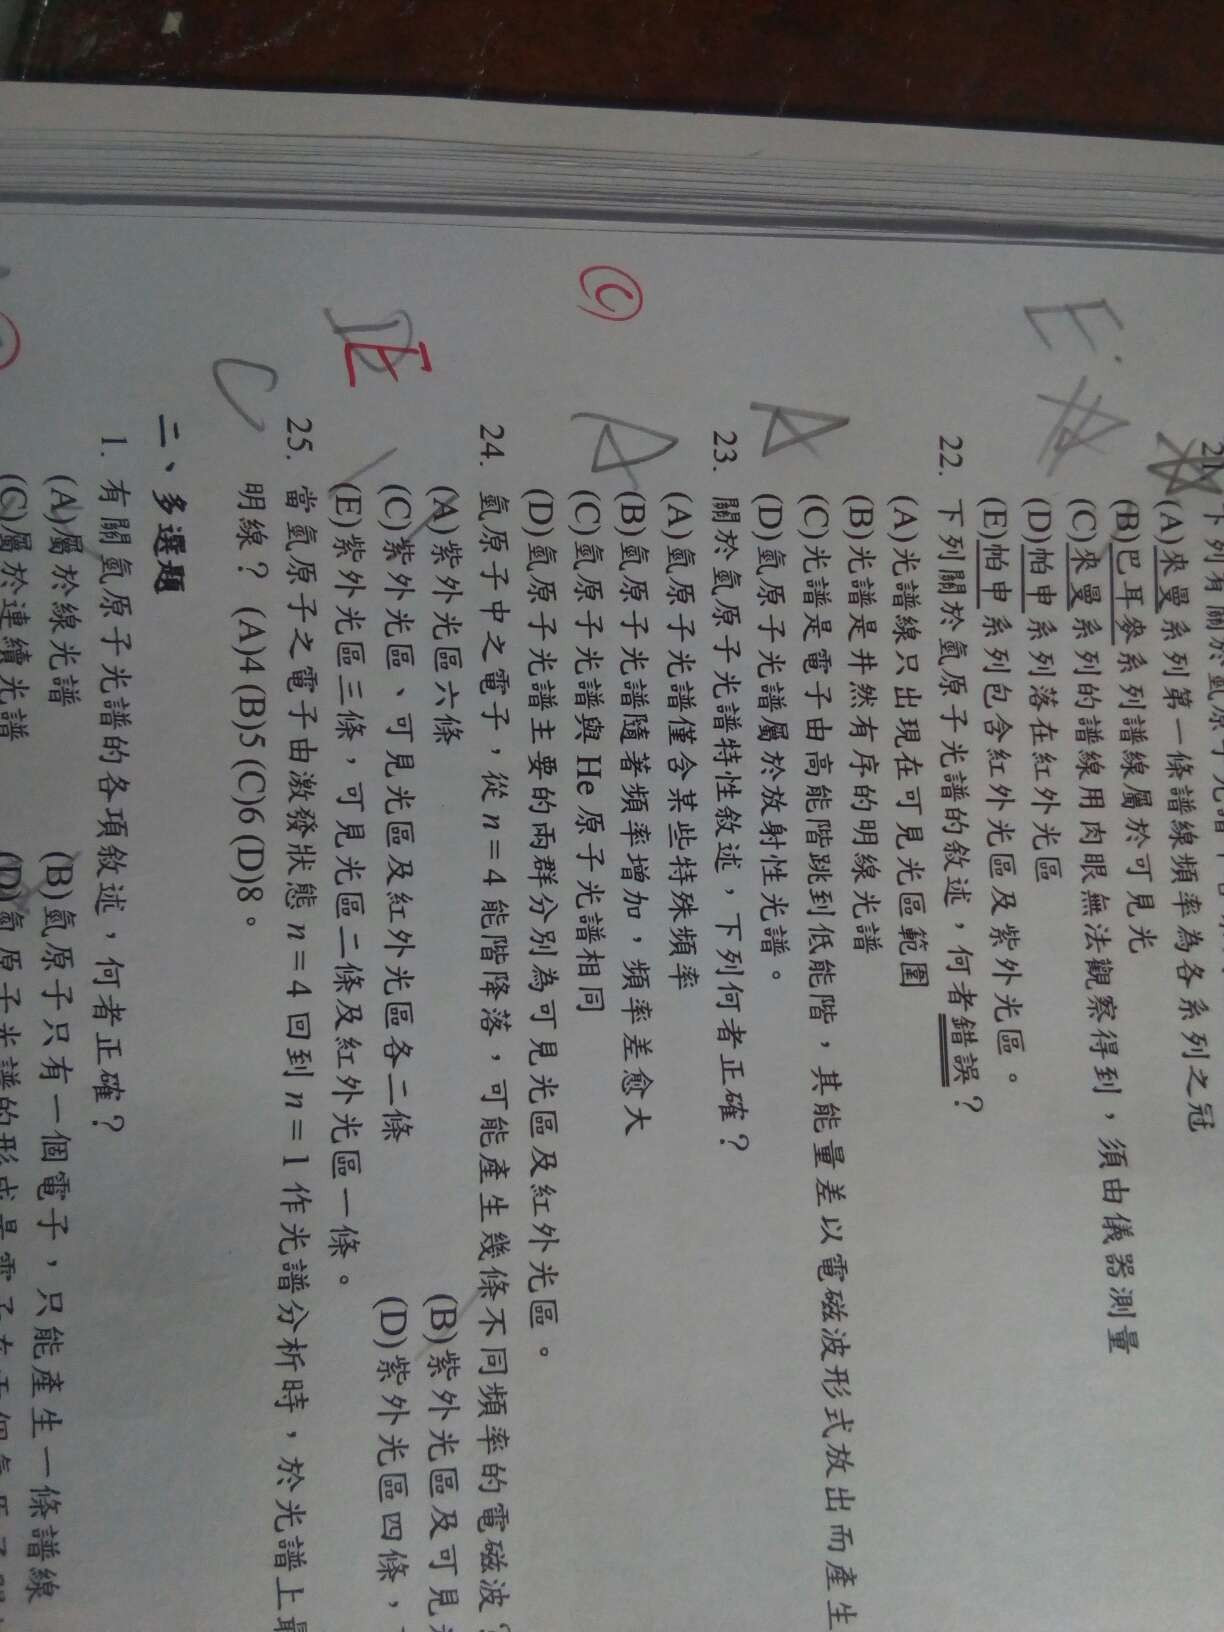 21. 下列有關於氫原子光譜
(A)來曼系列第一條譜線頻率為各系列之冠
(B)巴耳麥系列譜線屬於可見光
(C)來曼系列的譜線用肉眼無法觀察得到，須由儀器測量
(D)帕申系列落在紅外光區
(E)帕申系列包含紅外光區及紫外光區。
E
22. 下列關於氫原子光譜的敘述，何者錯誤？
(A)光譜線只出現在可見光區範圍
(B)光譜是井然有序的明線光譜
(C)光譜是電子由高能階跳到低能階，其能量差以電磁波形式放出而產生
(D)氫原子光譜屬於放射性光譜。
A
23. 關於氫原子光譜特性敘述，下列何者正確？
(A)氫原子光譜僅含某些特殊頻率
(B)氫原子光譜隨著頻率增加，頻率差愈大
(C)氫原子光譜與 He 原子光譜相同
(D)氫原子光譜主要的兩群分別為可見光區及紅外光區。
(C)
A
24. 氫原子中之電子，從 n＝4 能階降落，可能產生幾條不同頻率的電磁波？
(A)紫外光區六條 (B)紫外光區及可見
(C)紫外光區、可見光區及紅外光區各二條 (D)紫外光區四條，
(E)紫外光區三條，可見光區二條及紅外光區一條。
E
25. 當氫原子之電子由激發狀態 n＝4 回到 n＝1 作光譜分析時，於光譜上最
明線？ (A)4 (B)5 (C)6 (D)8。
C
二、多選題
1. 有關氫原子光譜的各項敘述，何者正確？
(A)屬於線光譜 (B)氫原子只有一個電子，只能產生一條譜線
(C)屬於連續光譜 (D)氫原子光譜的形成是電子在